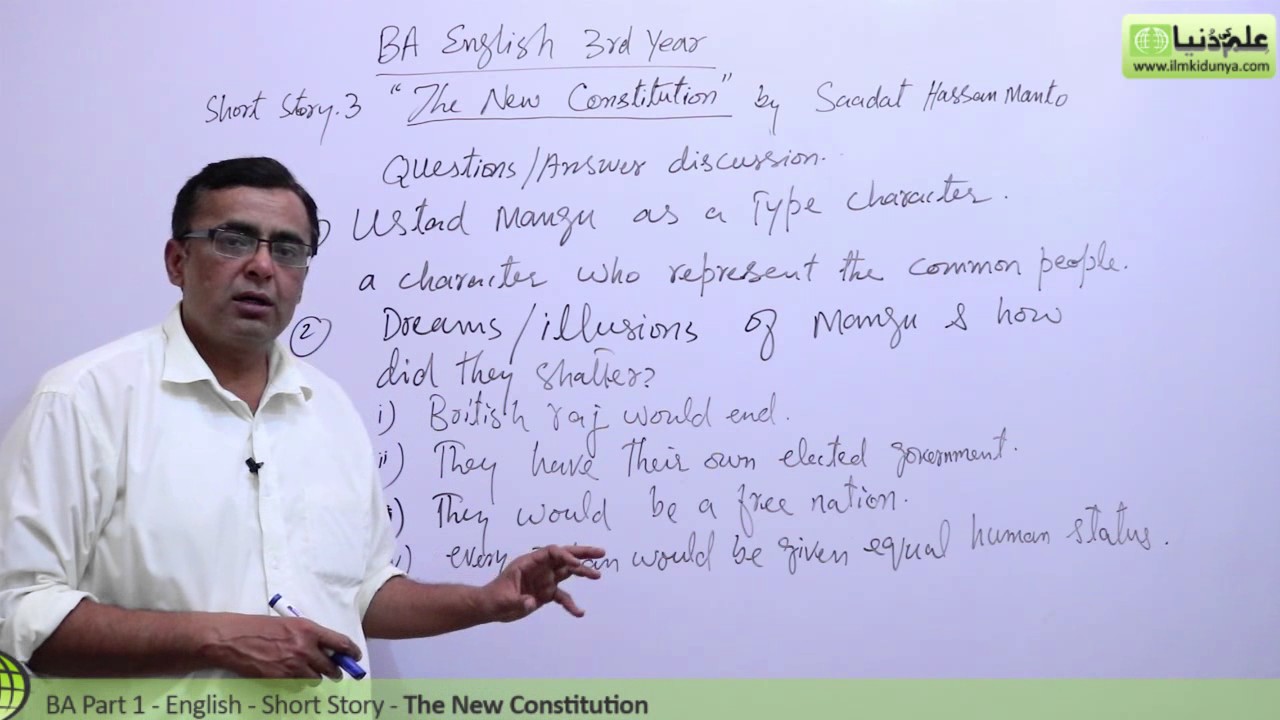 علم کی دُنیا
www.ilmkidunya.com
BA English 3rd Year
Short Story.3 "The New Constitution" by Saadat Hassan Manto
Questions/Answer discussion.
Ustad Mangu as a Type character.
a character who represent the common people.
② Dreams/illusions of Mangu & how
did they shatter?
i) British raj would end.
ii) They have their own elected government.
) They would be a free nation.
) every would be given equal human status.
BA Part 1 - English - Short Story - The New Constitution